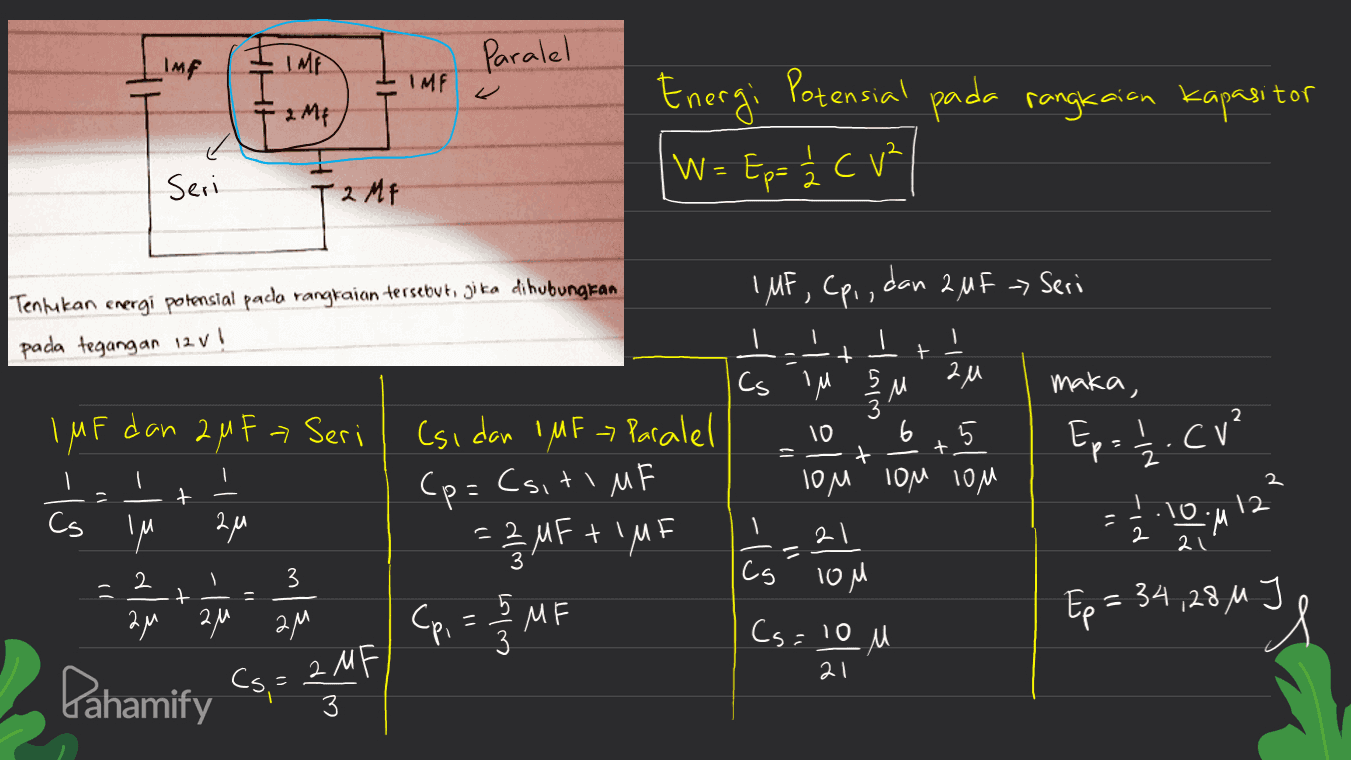 1MF
1MF
2MF
1MF
Paralel
Seri
2MF
Tentukan energi potensial pada rangkaian tersebut, jika dihubungkan
pada tegangan 12 V!
Energi Potensial pada rangkaian kapasitor
W = Ep = 1/2 C V²
1 μF dan 2 μF → Seri
1/Cs = 1/1μ + 1/2μ
= 2/2μ + 1/2μ = 3/2μ
Cs₁ = 2/3 μF
Cs₁ dan 1 μF → Paralel
Cp = Cs₁ + 1 μF
= 2/3 μF + 1 μF
Cp₁ = 5/3 μF
1 μF, Cp₁, dan 2 μF → Seri
1/Cs = 1/1μ + 1/(5/3 μ) + 1/2μ
= 10/10μ + 6/10μ + 5/10μ
1/Cs = 21/10μ
Cs = 10/21 μ
maka,
Ep = 1/2 . C V²
= 1/2 . 10/21 . μ 12²
Ep = 34,28 μ J
Pahamify